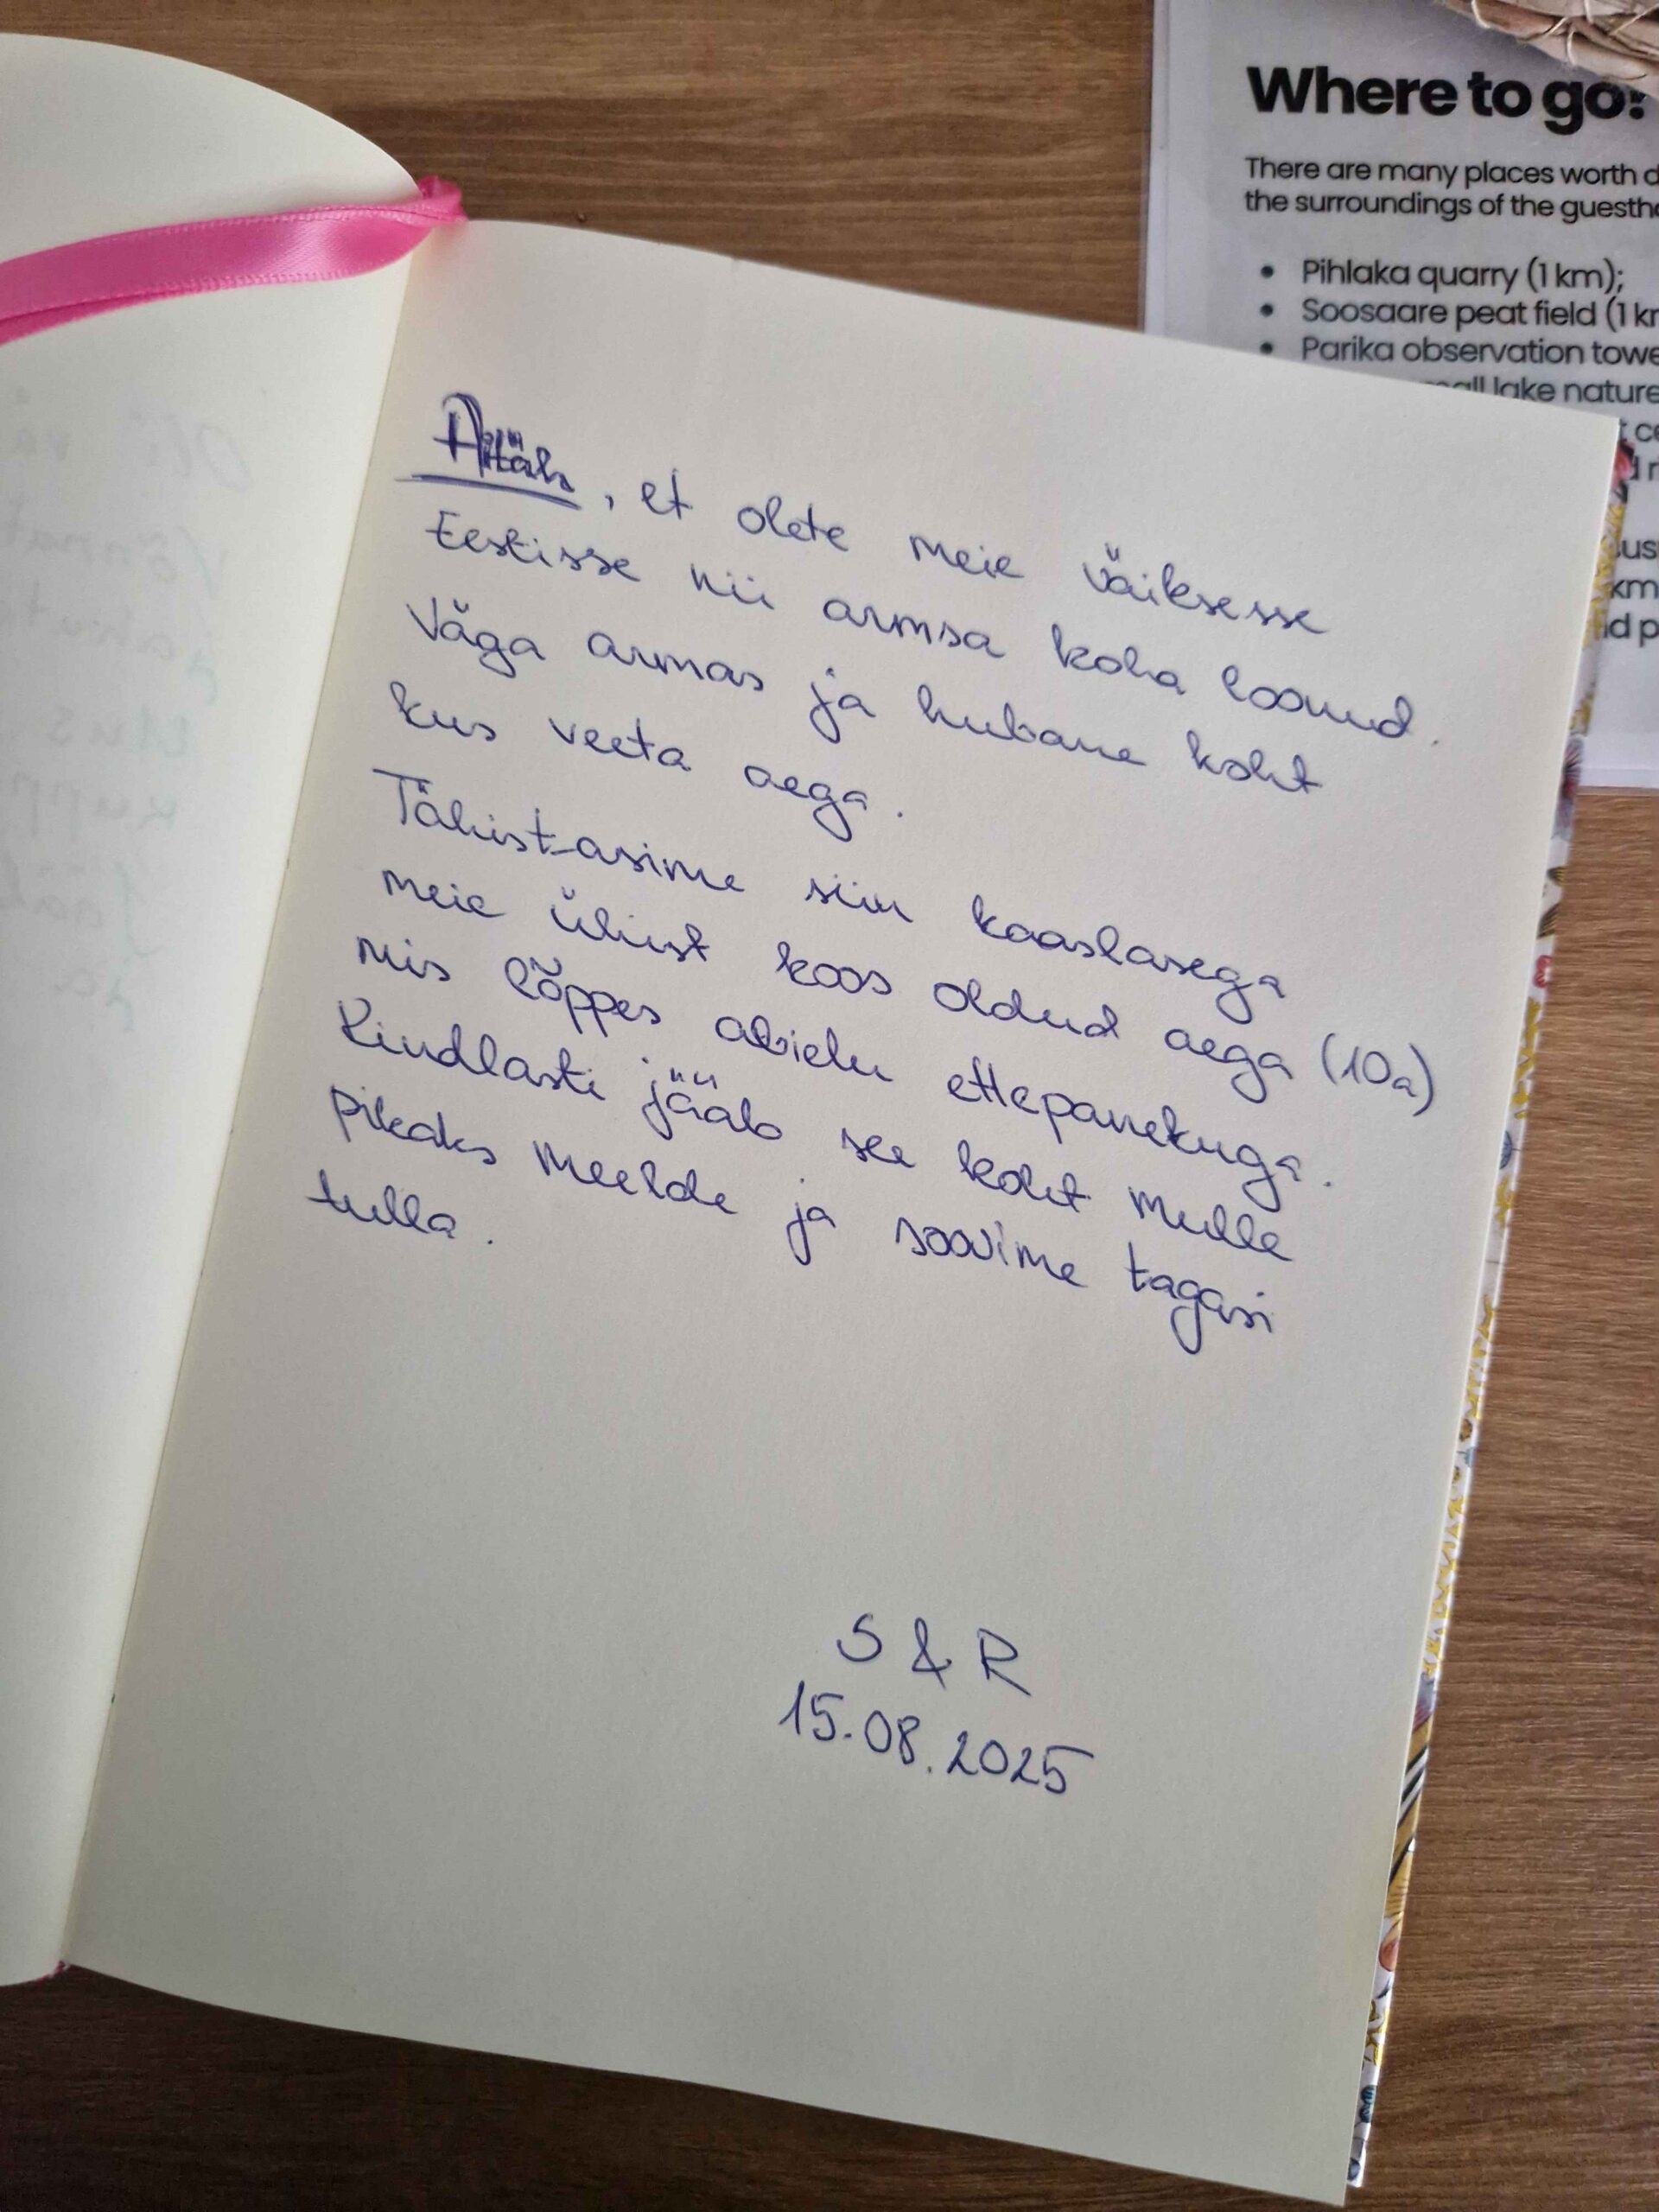 Aitäh, et olete meie väiksesse
Eestisse nii armsa koha loonud.
Väga armas ja hubane koht
kus veeta aega.
Tähistasime siin kaaslasega
meie ühist koos oldud aega (10a)
mis lõppes abielu ettepanekuga.
Kindlasti jääb see koht mulle
pikaks meelde ja soovime tagasi
tulla.
S & R
15.08.2025
Where to go?
There are many places worth
the surroundings of the
• Pihlaka quarry (1 km);
• Soosaare peat field (1
• Parika observation
lake nature